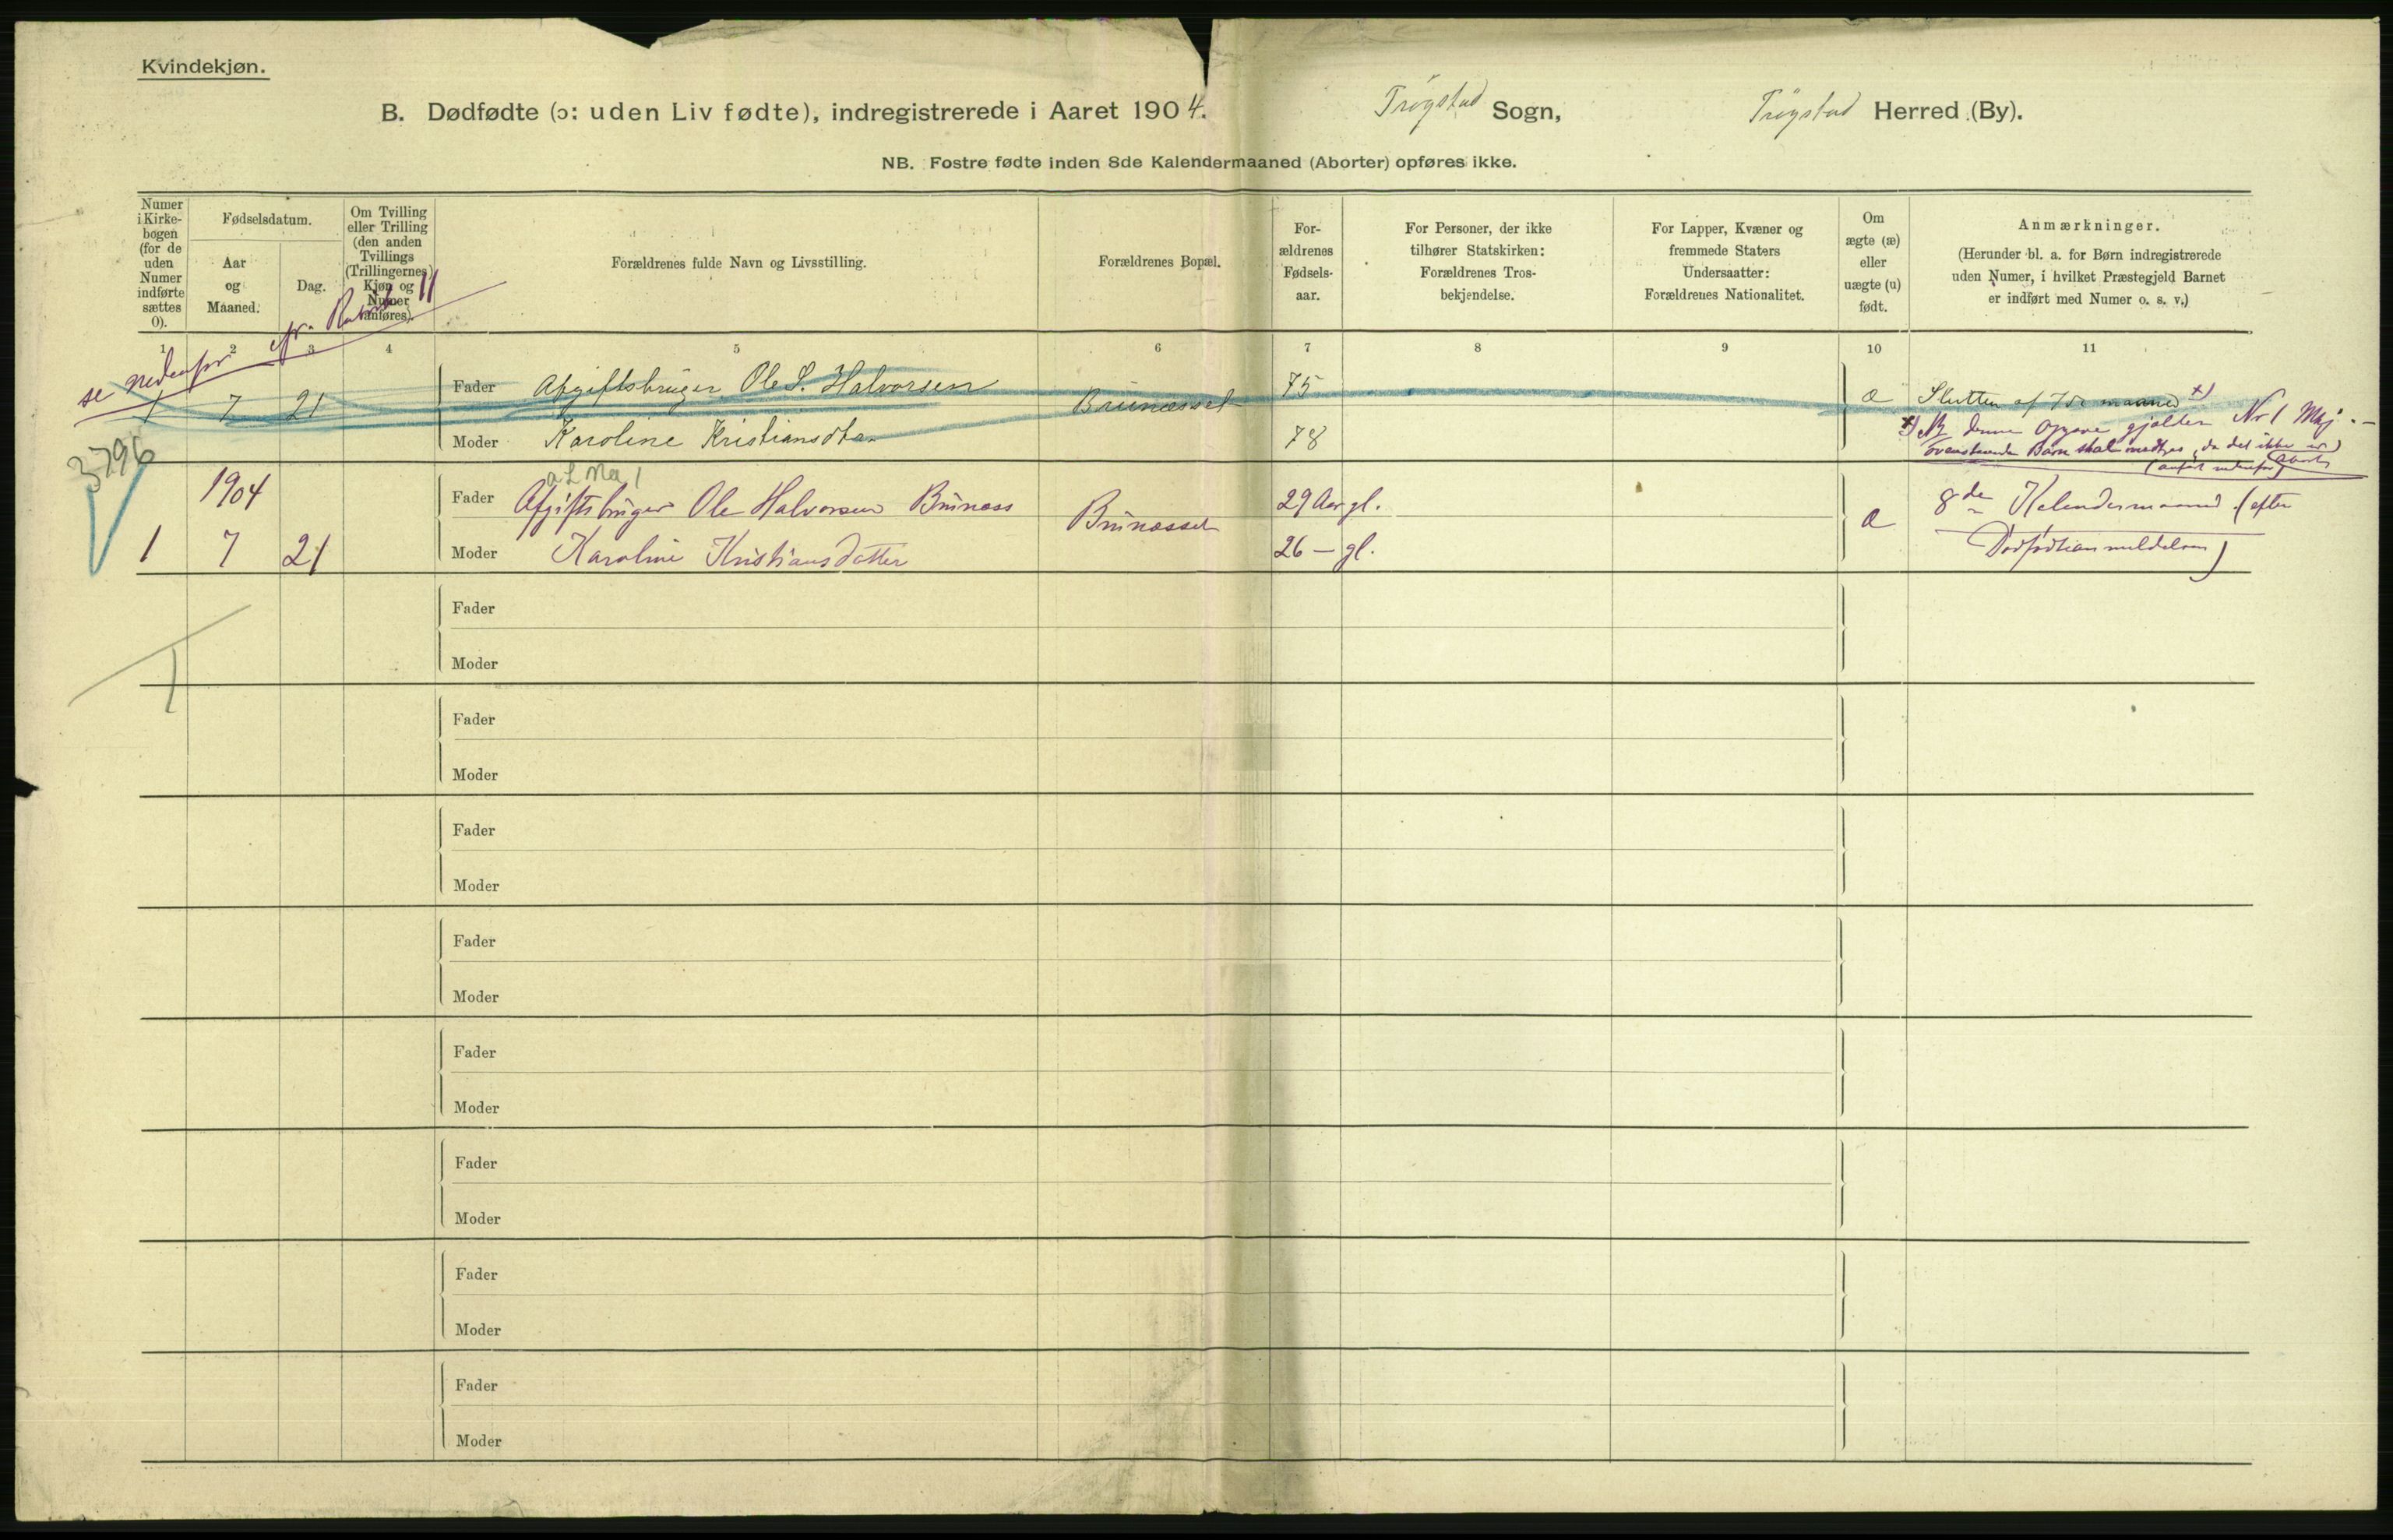 Kvindekjøn.
B. Dødfødte (ɔ: uden Liv fødte), indregistrerede i Aaret 1904. Trögstad Sogn, Trögstad Herred (By).
NB. Fostre fødte inden 8de Kalendermaaned (Aborter) opføres ikke.
Numer i Kirke-bogen (for de uden Numer indførte sættes 0).
Fødselsdatum.
Aar og Maaned.
Dag.
Om Tvilling eller Trilling (den anden Tvillings (Trillingernes) Kjøn og Numer anføres).
Forældrenes fulde Navn og Livsstilling.
Forældrenes Bopæl.
For-ældrenes Fødsels-aar.
For Personer, der ikke tilhører Statskirken: Forældrenes Tros-bekjendelse.
For Lapper, Kvæner og fremmede Staters Undersaatter: Forældrenes Nationalitet.
Om ægte (æ) eller uægte (u) født.
Anmærkninger.
(Herunder bl. a. for Børn indregistrerede uden Numer, i hvilket Præstegjeld Barnet er indført med Numer o. s. v.)
1 2 3 4 5 6 7 8 9 10 11
se nedenfor cfr. Rubrik 11
1 7 21 Fader Afgiftsbruger Ole S. Halvorsen Brunæsset 75 æ Slutten af 7de maaned x)
Moder Karoline Kristiansdtr. 78
x) NB denne Opgave gjælder No 1 Mkj.
Ovenstaaende Barn skal medtages, da det ikke er Abort
(anført nedenfor)
3796
1904 Fader Afgiftsbruger Ole Halvorsen Brunæss Brunæsset 29 Aar gl. æ 8de Kalendermaaned (efter
1 7 21 Moder Karoline Kristiansdatter 26 — gl. Dødfødtianmeldelsen)
Fader
Moder
1
Fader
Moder
Fader
Moder
Fader
Moder
Fader
Moder
Fader
Moder
Fader
Moder
Fader
Moder